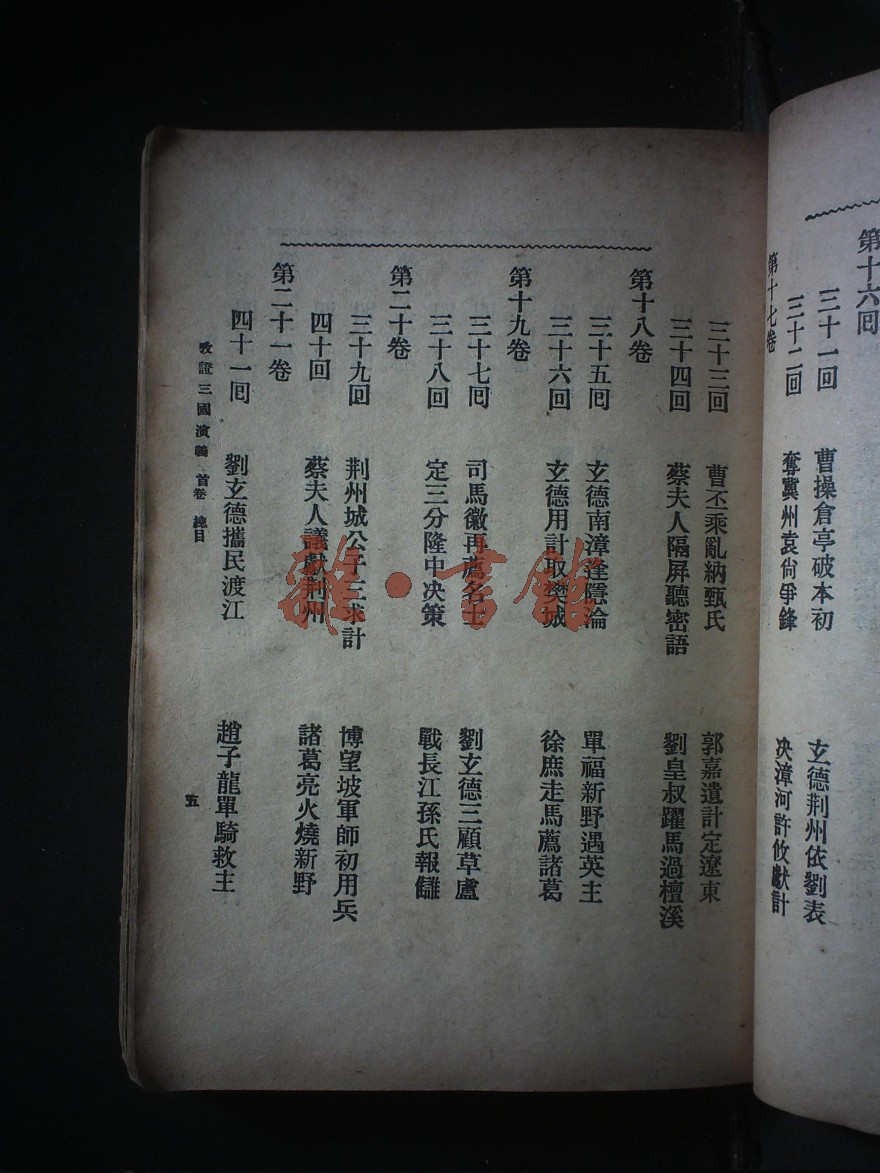 第十六回
三十一回 曹操倉亭破本初 玄德荆州依劉表
三十二回 奪冀州袁尙爭鋒 决漳河許攸獻計
第十七卷
三十三回 曹丕乘亂納甄氏 郭嘉遺計定遼東
三十四回 蔡夫人隔屏聽密語 劉皇叔躍馬過檀溪
第十八卷
三十五回 玄德南漳逢隱淪 單福新野遇英主
三十六回 玄德用計取樊城 徐庶走馬薦諸葛
第十九卷
三十七回 司馬徽再薦名士 劉玄德三顧草盧
三十八回 定三分隆中决策 戰長江孫氏報讎
第二十卷
三十九回 荆州城公子三求計 博望坡軍師初用兵
四十回 蔡夫人議獻荆州 諸葛亮火燒新野
第二十一卷
四十一回 劉玄德攜民渡江 趙子龍單騎救主
證三國演義 首卷 總目
五
雜·書館